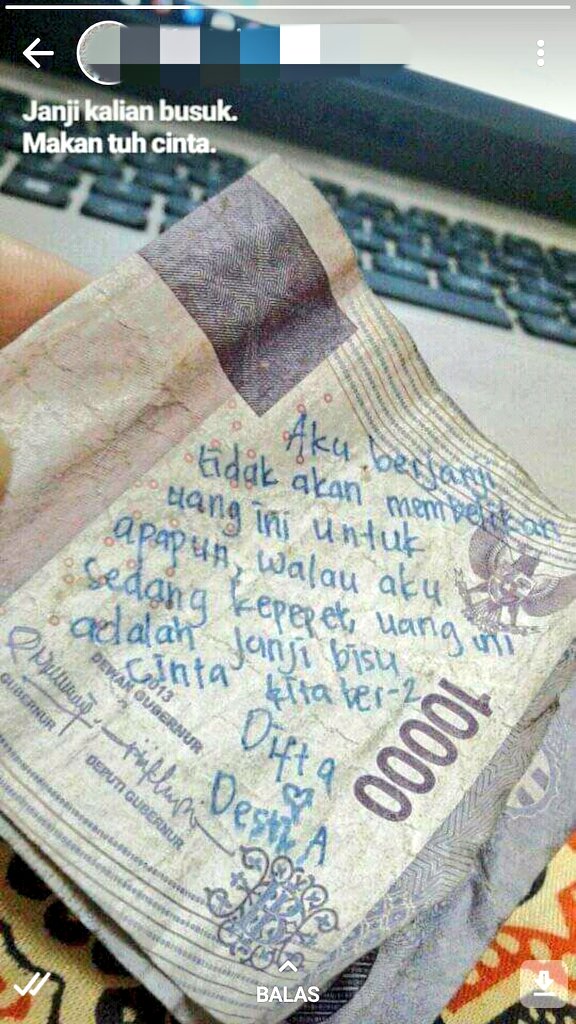 Janji kalian busuk.
Makan tuh cinta.
Aku berjanji
tidak akan membelikan
uang ini untuk
apapun, walau aku
sedang kepepet, uang ini
adalah janji bisu
cinta kita ber-2
Difta
Desti A
2013
DEWAN GUBERNUR
GUBERNUR
DEPUTI GUBERNUR
10000
BALAS